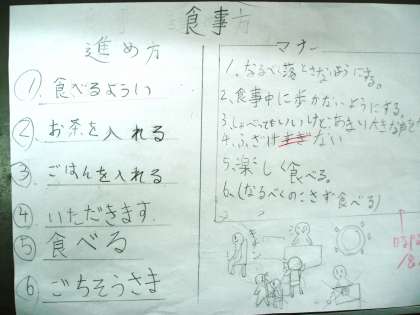 食事
進め方
① 食べるようい
② お茶を入れる
③ ごはんを入れる
④ いただきます
⑤ 食べる
⑥ ごちそうさま
マナー
1、なるべく落とさないようにする。
2、食事中に歩かないようにする。
3、しゃべってもいいけど、あまり大きな声
4、ふざけない
5、楽しく食べる。
6、(なるべくのこさず食べる)